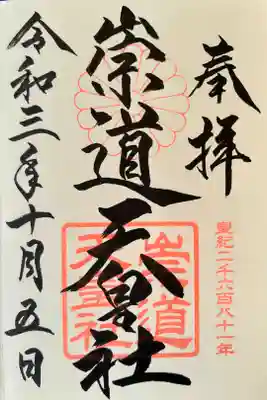 奉拝
皇紀二千六百八十一年
崇道天皇社
崇道天皇社
令和三年十月五日